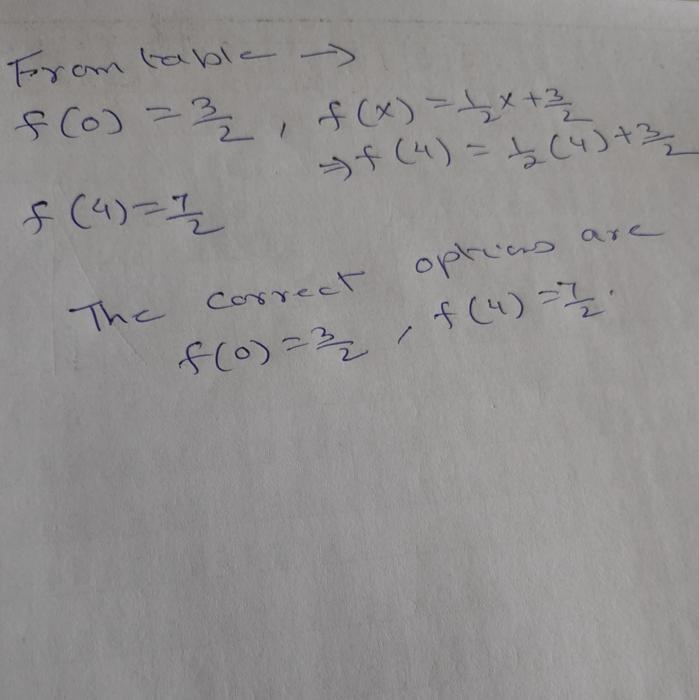 From table →
f(0) = 3/2 , f(x) = 1/2 x + 3/2
⇒ f(4) = 1/2 (4) + 3/2
f(4) = 7/2
The correct options are
f(0) = 3/2 , f(4) = 7/2.